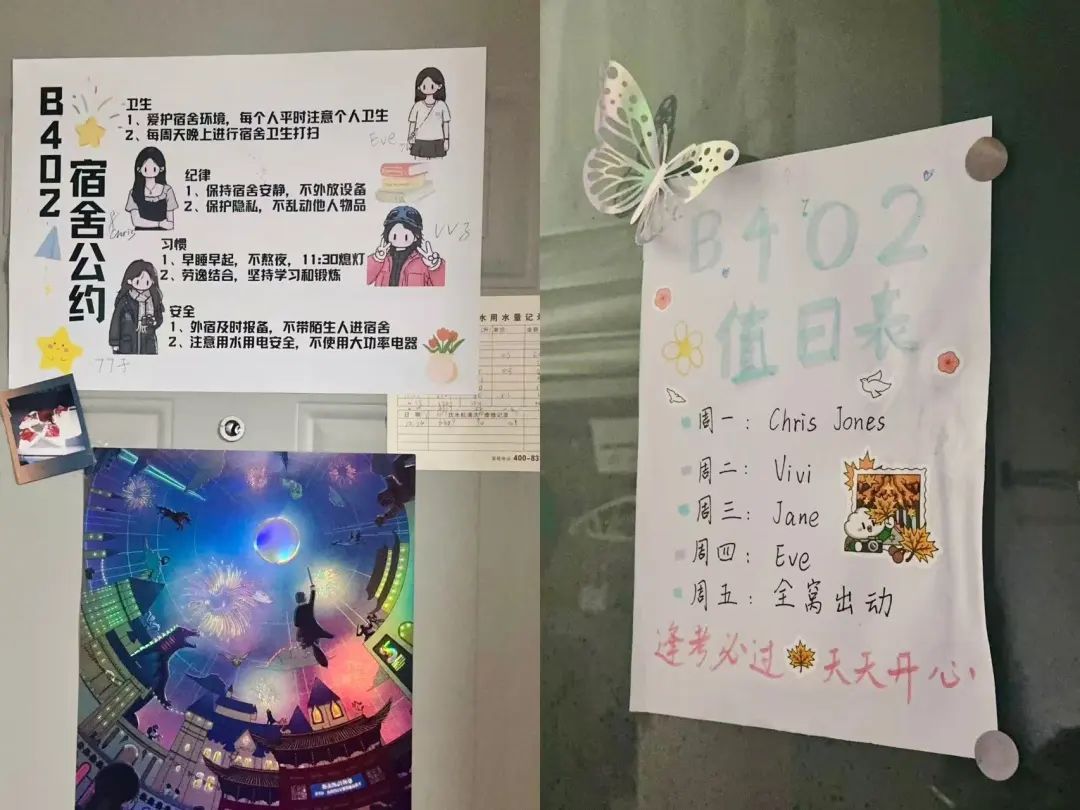 B402
宿舍公约
卫生
1、爱护宿舍环境，每个人平时注意个人卫生
2、每周天晚上进行宿舍卫生打扫
Eve
纪律
1、保持宿舍安静，不外放设备
2、保护隐私，不乱动他人物品
Chris
习惯
1、早睡早起，不熬夜，11:30熄灯
2、劳逸结合，坚持学习和锻炼
安全
1、外宿及时报备，不带陌生人进宿舍
2、注意用水用电安全，不使用大功率电器
水用水量记录
400-83
B402
值日表
周一：Chris Jones
周二：Vivi
周三：Jane
周四：Eve
周五：全窝出动
逢考必过 天天开心